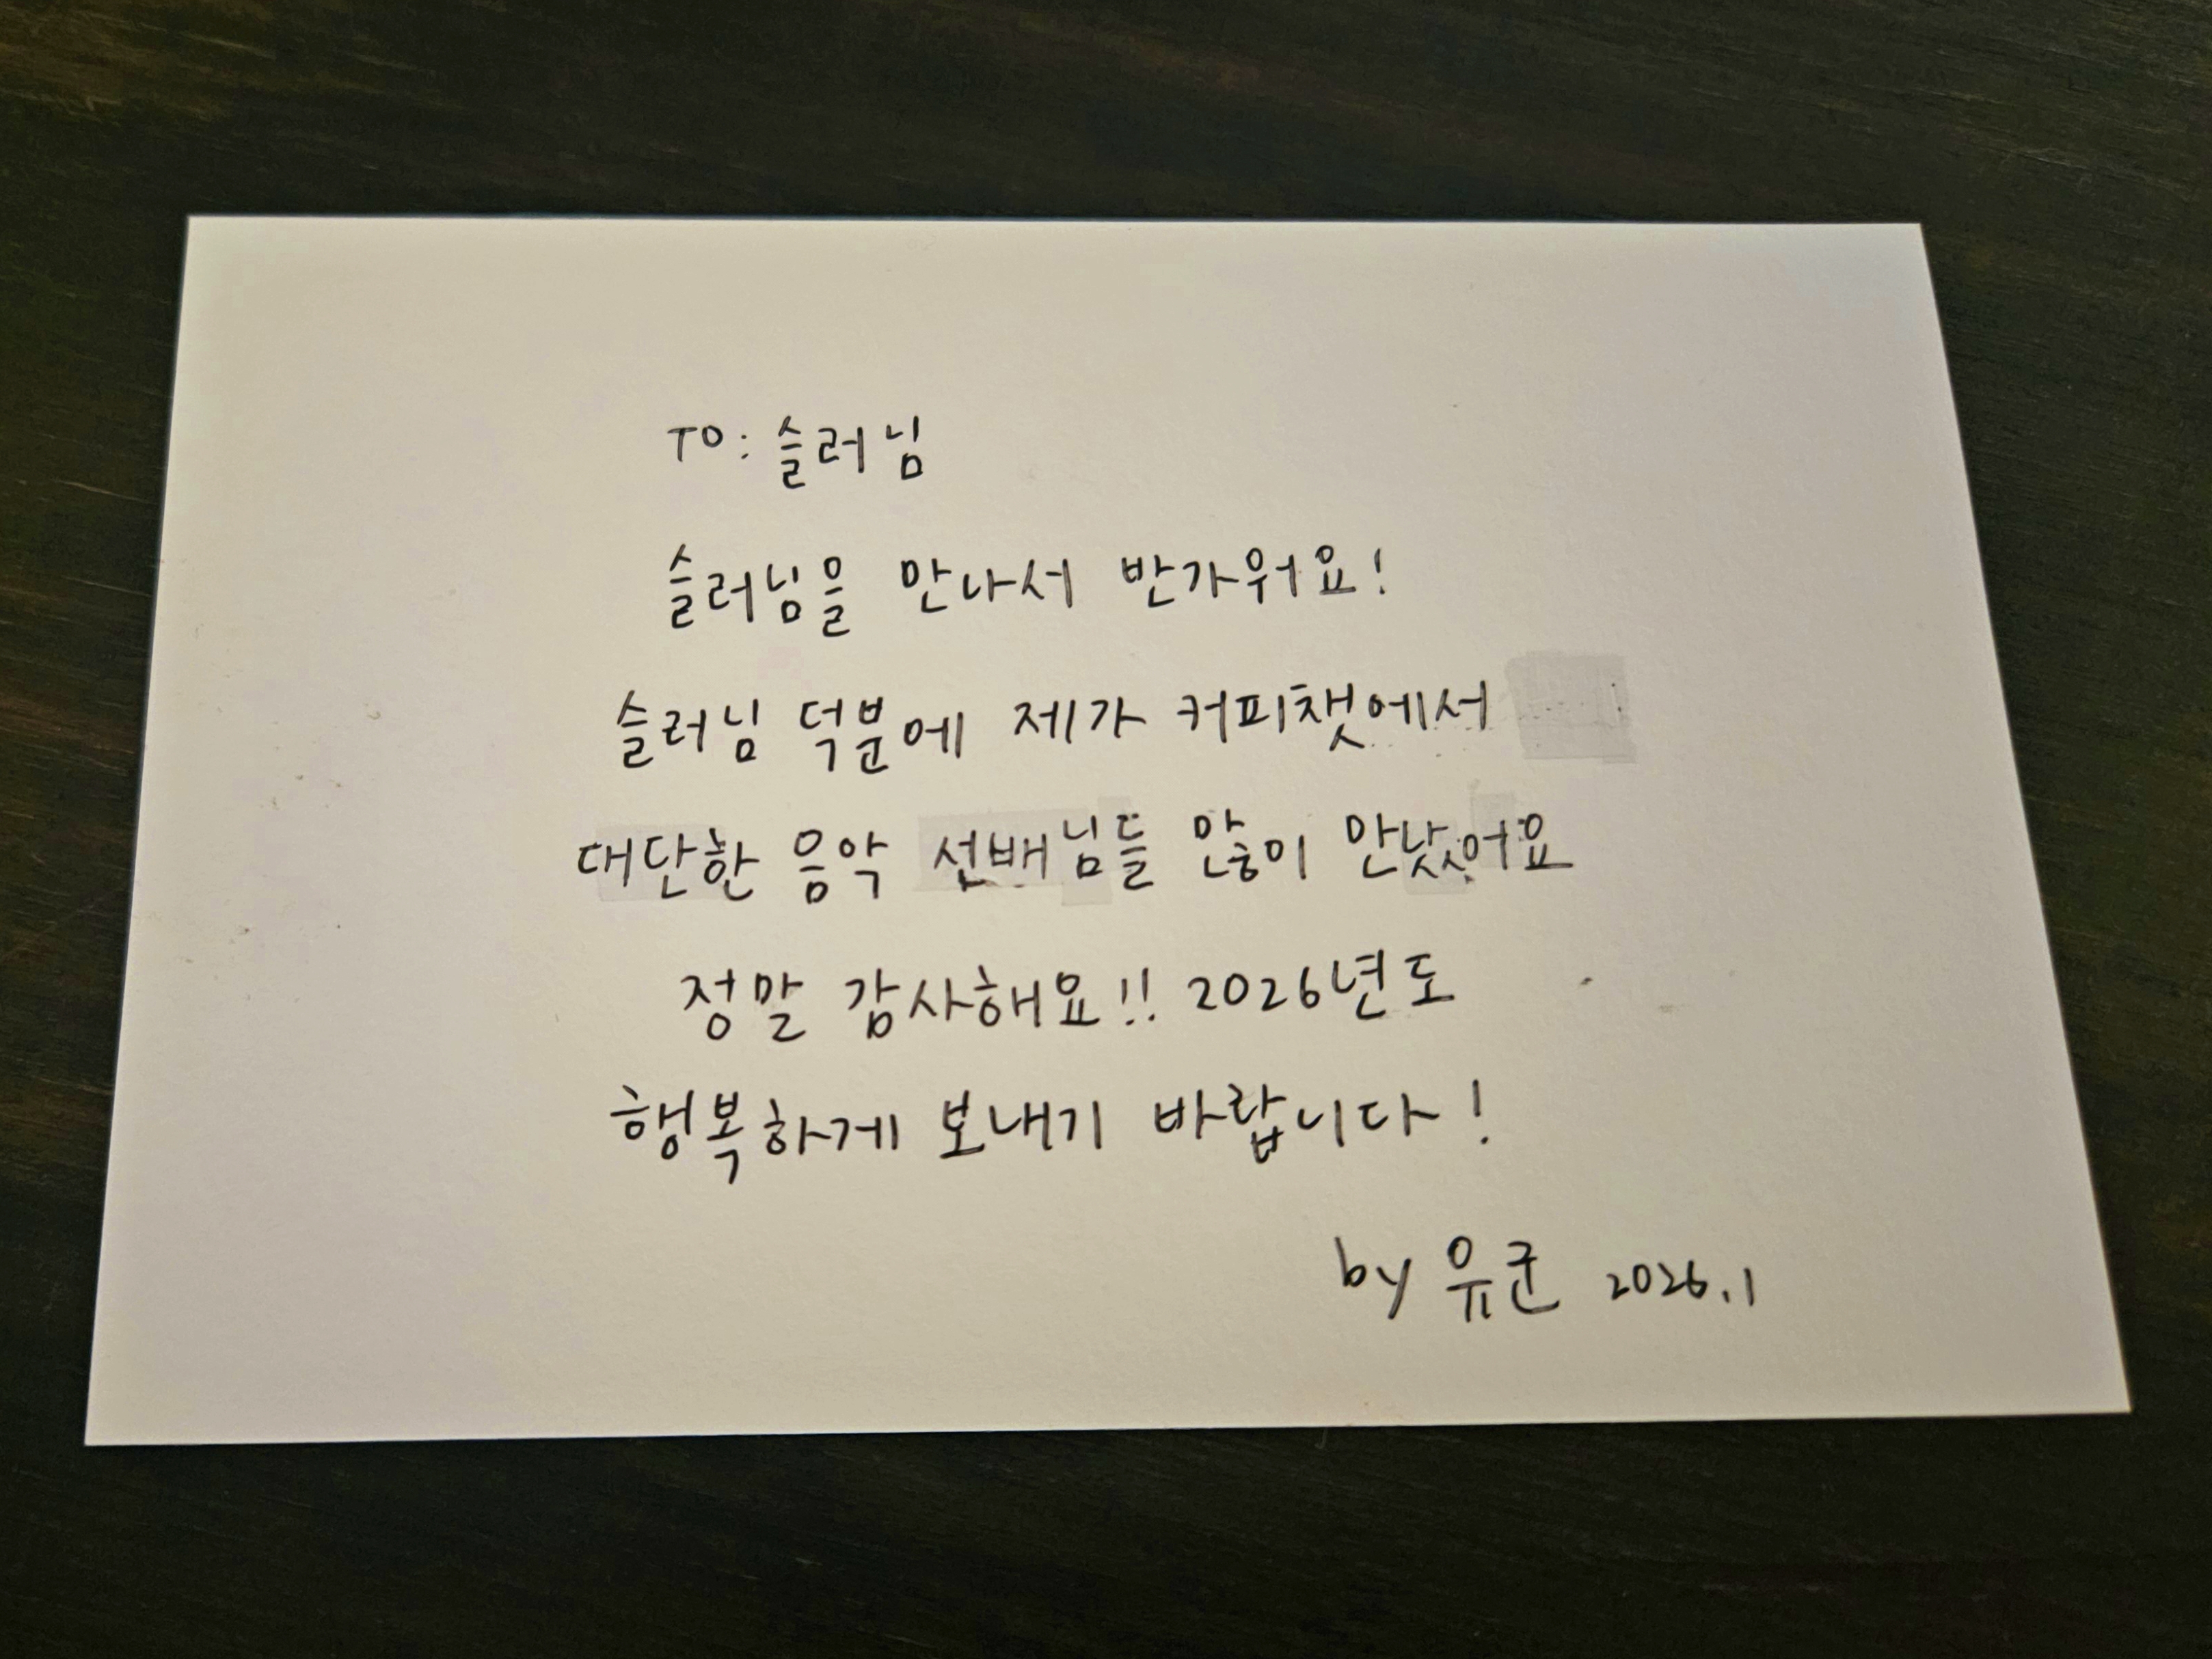 TO:슬러님
슬러님을 만나서 반가워요!
슬러님 덕분에 제가 커피챗에서
대단한 음악 선배님들 많이 만났어요
정말 감사해요!! 2026년도
행복하게 보내기 바랍니다!
by 유군 2026.1